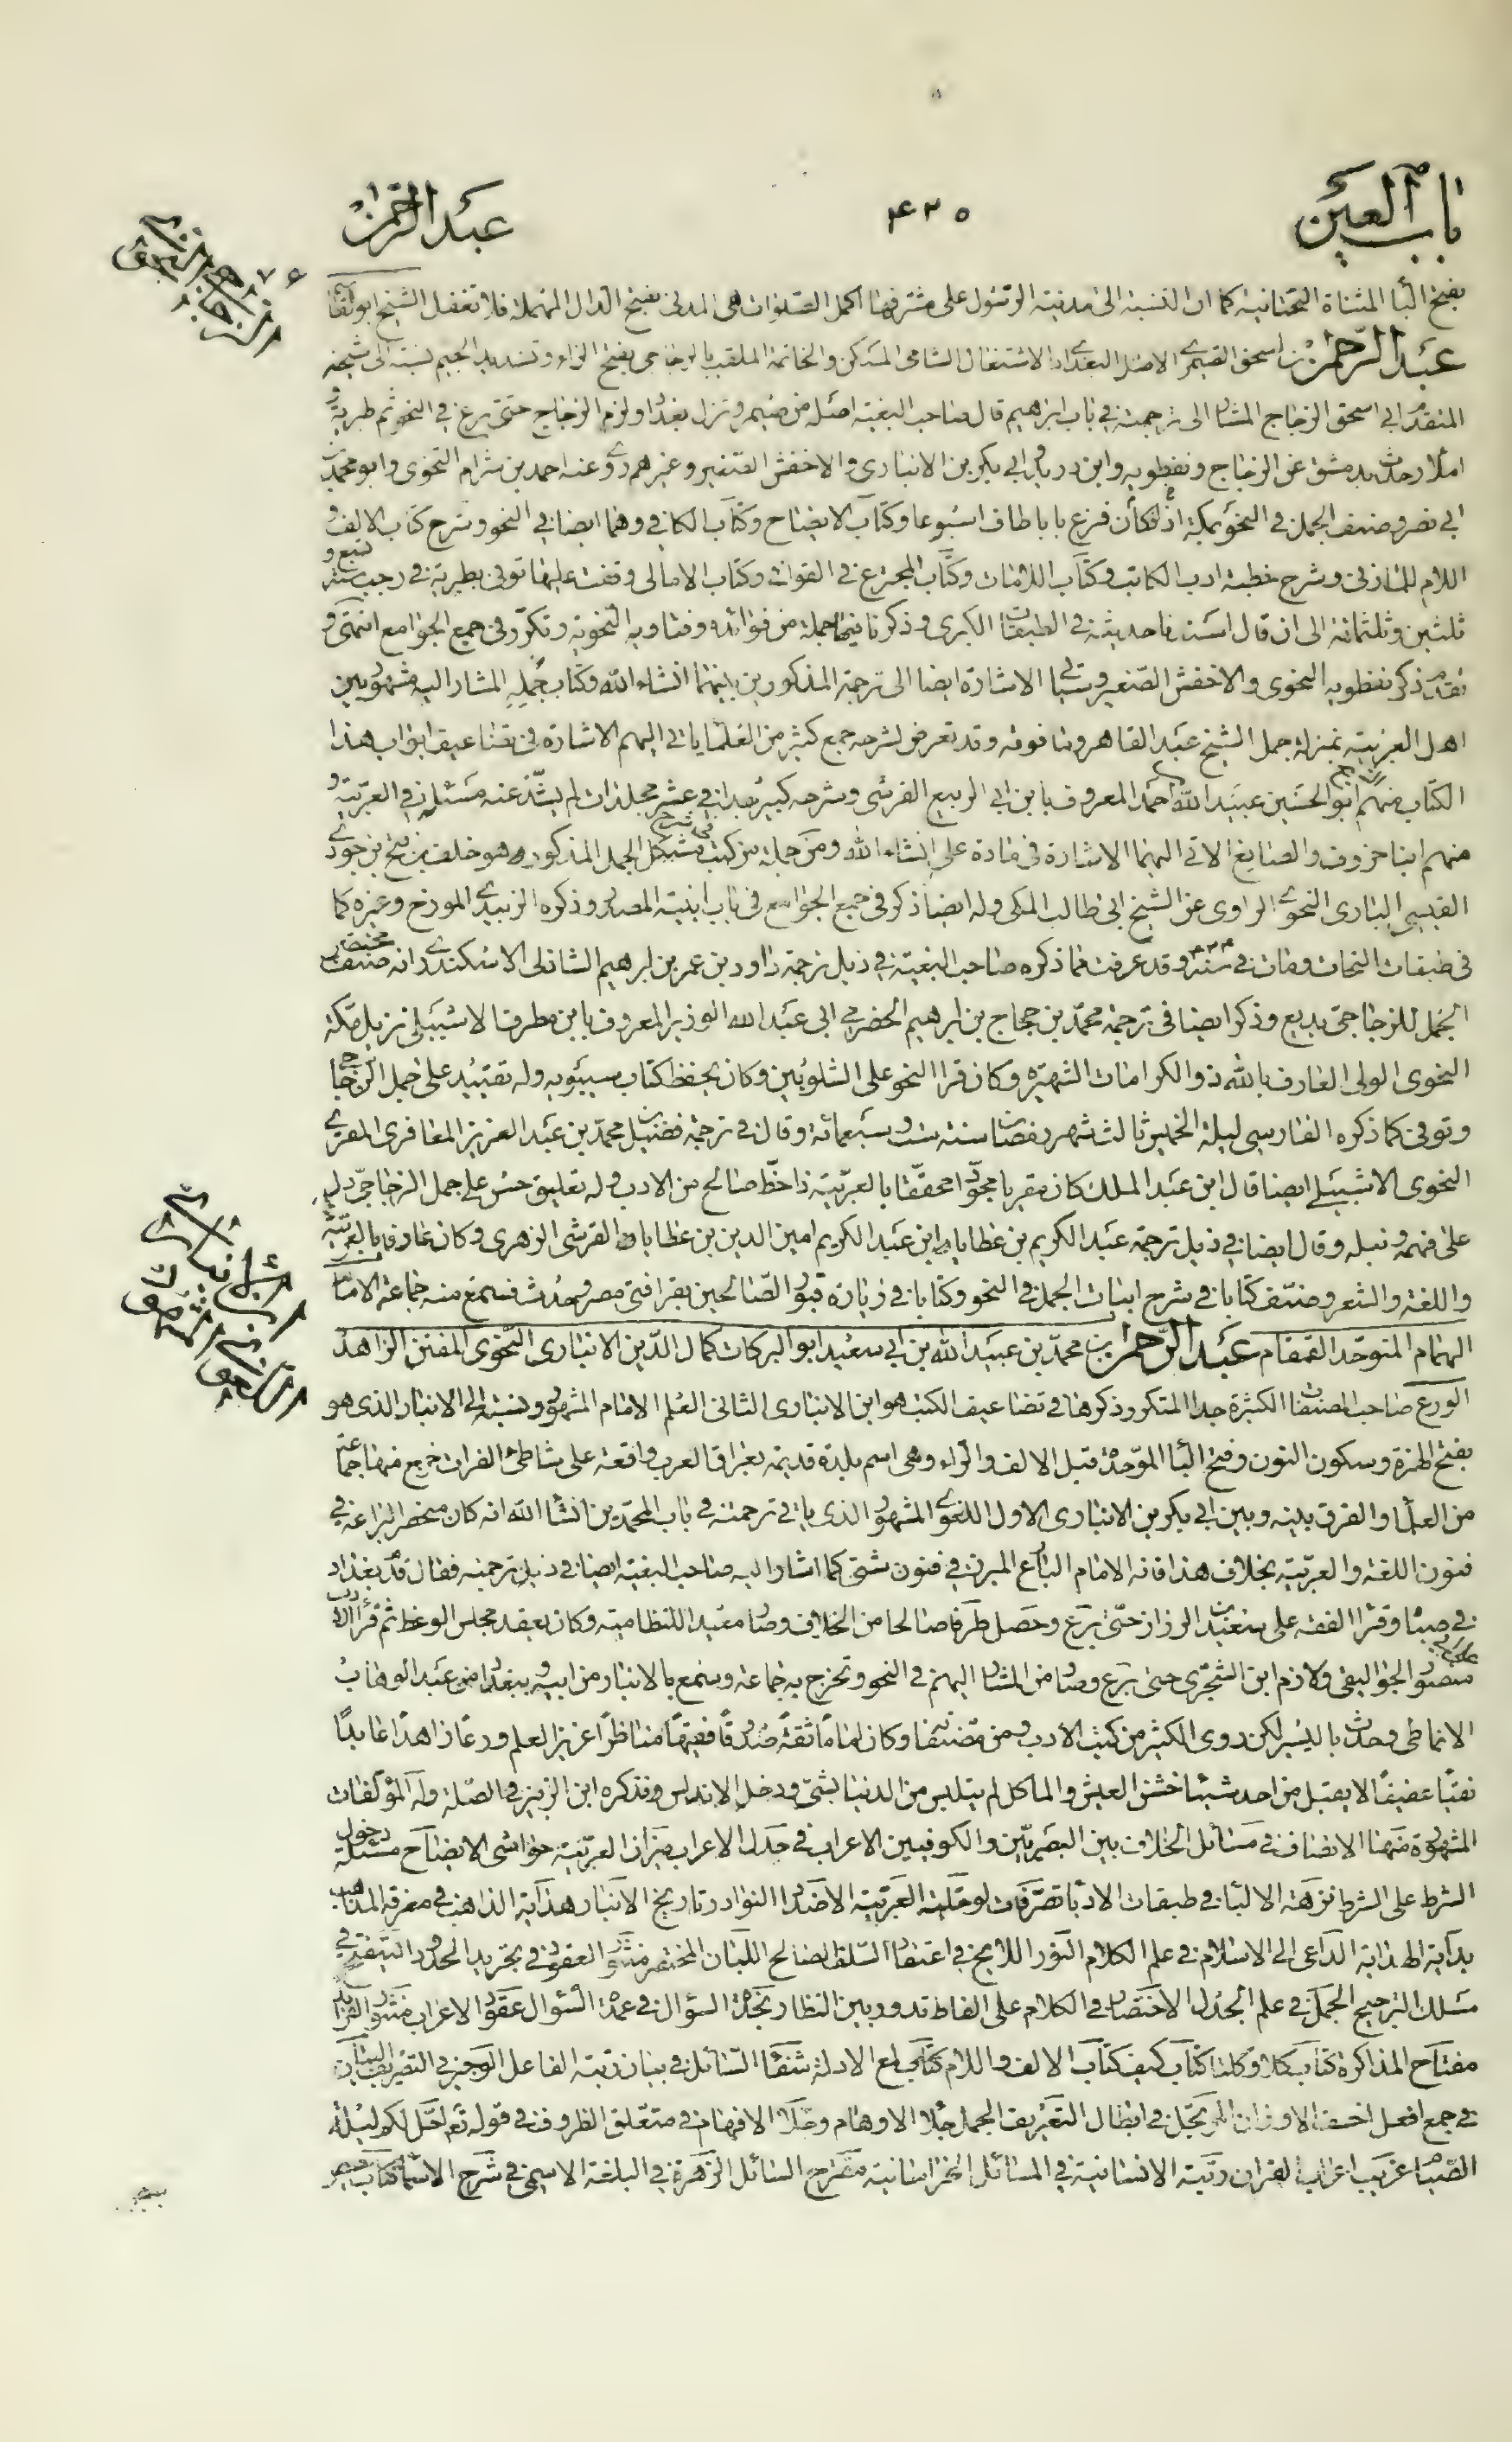 باب العين
۴۲۵
عبد الرحمن
بفتح الباء المثناة التحتانية كما ان النسبة الى مدينة الرسول على مشرفها اكمل الصلوات هي المدنى بفتح الدال المهملة فلا تغفل الشيخ ابو القا
عبد الرحمن بن اسحق الصيمرى الاصل البغدادى الاشتغال الشامى المسكن والخاتمة الملقب بالزجاجى بفتح الزاء وتشديد الجيم نسبة الى شيخه
المتقدم ابى اسحق الزجاج المشار الى ترجمته فى باب ابرهيم قال صاحب البغية اصله من صيمر ونزل بغداد ولزم الزجاج حتى برع فى النحو ثم طبرية و
املأ وحدث بدمشق عن الزجاج ونفطويه وابن دريد وابى بكر بن الانبارى والاخفش الصغير وغيرهم روى عنه احمد بن شرام النحوى وابو محمد بن
ابى نصر وصنف الجمل فى النحو بمكة اذا فرغ بابا طاف اسبوعا وكتاب الايضاح وكتاب الكافى وهما ايضا فى النحو وشرح كتاب الالف و
اللام للمازنى وشرح خطبة ادب الكاتب وكتاب اللامات وكتاب المخترع فى القوافى وكتاب الامالى وقفت عليها توفى بطبرية فى رجب سنة تسع و
ثلثين وثلثمائة الى ان قال اسندنا حديثه فى الطبقات الكبرى وذكرنا فيها جملة من فوائده وفتاويه النحوية وتكرر فى جمع الجوامع انتهى و
تقدم ذكر نفطويه النحوى والاخفش الصغير وسيأتى الاشارة ايضا الى ترجمة المذكورين بابيهما انشاء الله وكتاب جمله المشار اليه مشهور بين
اهل العربية بمنزلة جمل الشيخ عبد القاهر وما فوقه وقد تعرض لشرحه جمع كثير من العلماء ياتى اليهم الاشارة فى تضاعيف ابواب هذا
الكتاب منهم ابو الحسين عبيد الله بن احمد المعروف بابن ابى الربيع القرشى وشرحه كبير جدا فى عشر مجلدات لم يشذ عنه مسئلة فى العربية و
منهم ابنا خروف والصايغ الاتى اليهما الاشارة فى مادة على انشاء الله ومن جملة من كتب فى شرح مشكل الجمل المذكور هو خلف بن فتح بن جودى
القيسى اليابرى النحوى الراوى عن الشيخ ابى طالب المكى وله ايضا ذكر فى جمع الجوامع فى باب ابنية المصادر وذكره الزبيدى المورخ وغيره كما
فى طبقات النحات ومات فى سنة ۴۳۴ وقد عرفت مما ذكره صاحب البغية فى ذيل ترجمة داود بن عمر بن ابرهيم الشاذلى الاسكندرى انه صنف مختصر
الجمل للزجاجى بديع وذكر ايضا فى ترجمة محمد بن حجاج بن ابرهيم الحضرمى ابى عبد الله الوزير المعروف بابن مطرف الاشبيلى نزيل مكة
النحوى الولى العارف بالله ذو الكرامات الشهيرة وكان قرا النحو على الشلوبين وكان يحفظ كتاب سيبويه وله تقييد على جمل الزجاجى
وتوفى كما ذكره الفارسى ليلة الخميس ثالث شهر رمضان سنة ست وسبعمائة وقال فى ترجمة فضيل محمد بن عبد العزيز المعافرى المقرى
النحوى الاشبيلى ايضا قال ابن عبد الملك كان مقريا مجودا محققا بالعربية ذا حظ صالح من الادب وله تعليق حسن على جمل الزجاجى دليل
على فهمه ونبله وقال ايضا فى ذيل ترجمة عبد الكريم بن عطايا ابن عبد الكريم امين الدين بن عطايا القرشى الزهرى وكان عارفا بالعربية
واللغة والشعر وصنف كتابا فى شرح ابيات الجمل فى النحو وكتابا فى زيارة قبور الصالحين بقرافتى مصر وحدث فسمع منه جماعة الامام
الهمام المتوحد القمقام عبد الرحمن بن محمد بن عبيد الله بن ابى سعيد ابو البركات كمال الدين الانبارى النحوى المفنن الزاهد
الورع صاحب المصنفات الكثيرة جدا المتكرر ذكرها فى تضاعيف الكتب هو ابن الانبارى الثانى العلم الامام المشهور ونسبته الى الانبار الذى هو
بفتح الهمزة وسكون النون وفتح الباء الموحدة قبل الالف والراء وهى اسم بلدة قديمة بعراق العرب واقعة على شاطئ الفرات خرج منها جماعة
من العلماء والفرق بينه وبين ابى بكر بن الانبارى الاول اللغوى المشهور الذى ياتى ترجمته فى باب المحمدين انشاء الله انه كان منحصر البراعة فى
فنون اللغة والعربية بخلاف هذا فانه الامام البارع المبرز فى فنون شتى كما اشار اليه صاحب البغية ايضا فى ذيل ترجمته فقال قدم بغداد
فى صباه وقرا الفقه على سعيد بن الرزاز حتى برع وحصل طرفا صالحا من الخلاف وصار معيدا للنظامية وكان يعقد مجلس الوعظ ثم قرأ الادب على ابى
منصور الجواليقى ولازم ابن الشجرى حتى برع وصار من المشار اليهم فى النحو وتخرج به جماعة وسمع بالانبار من ابيه وببغداد من عبد الوهاب
الانماطى وحدث باليسير لكن روى الكثير من كتب الادب ومن مصنفاته وكان اماما ثقة صدوقا فقيها مناظرا غزير العلم ورعا زاهدا عابدا
تقيا عفيفا لا يقبل من احد شيئا خشن العيش والماكل لم يتلبس من الدنيا بشئ ودخل الاندلس وذكره ابن الزبير فى الصلة وله المؤلفات
المشهورة منها الانصاف فى مسائل الخلاف بين البصريين والكوفيين الاعراب فى جدل الاعراب ميزان العربية حواشى الايضاح مسئلة دخول
الشرط على الشرط نزهة الالبا فى طبقات الادبا تصرفات لو حلية العربية الاضداد النوادر تاريخ الانبار هداية الذاهب فى معرفة المذاهب
بداية الهداية الداعى الى الاسلام فى علم الكلام النور اللايح فى اعتقاد السلف الصالح اللباب المختصر منثور العقود فى تجريد الحدود التنقيح فى
مسلك الترجيح الجمل فى علم الجدل الاختصار فى الكلام على الفاظ تدور بين النظار نجدة السؤال فى عمدة السؤال عقود الاعراب منثور الفرايد
مفتاح المذاكرة كتاب كلا وكلتا كتاب كيف كتاب الالف واللام كتاب لمع الادلة شفاء السائل فى بيان رتبة الفاعل الوجيز فى التصريف البيان
فى جمع افعل اخف الاوزان المرتجل فى ابطال التعريف الجمل جلاء الاوهام وجلاء الافهام فى متعلق الظروف فى قوله تعالى احل لكم ليلة
الصيام غريب اعراب القران رتبة الانسانية فى المسائل الخراسانية مقترح السائل الزهرة فى اللغة الاسمى فى شرح الاسماء كتاب